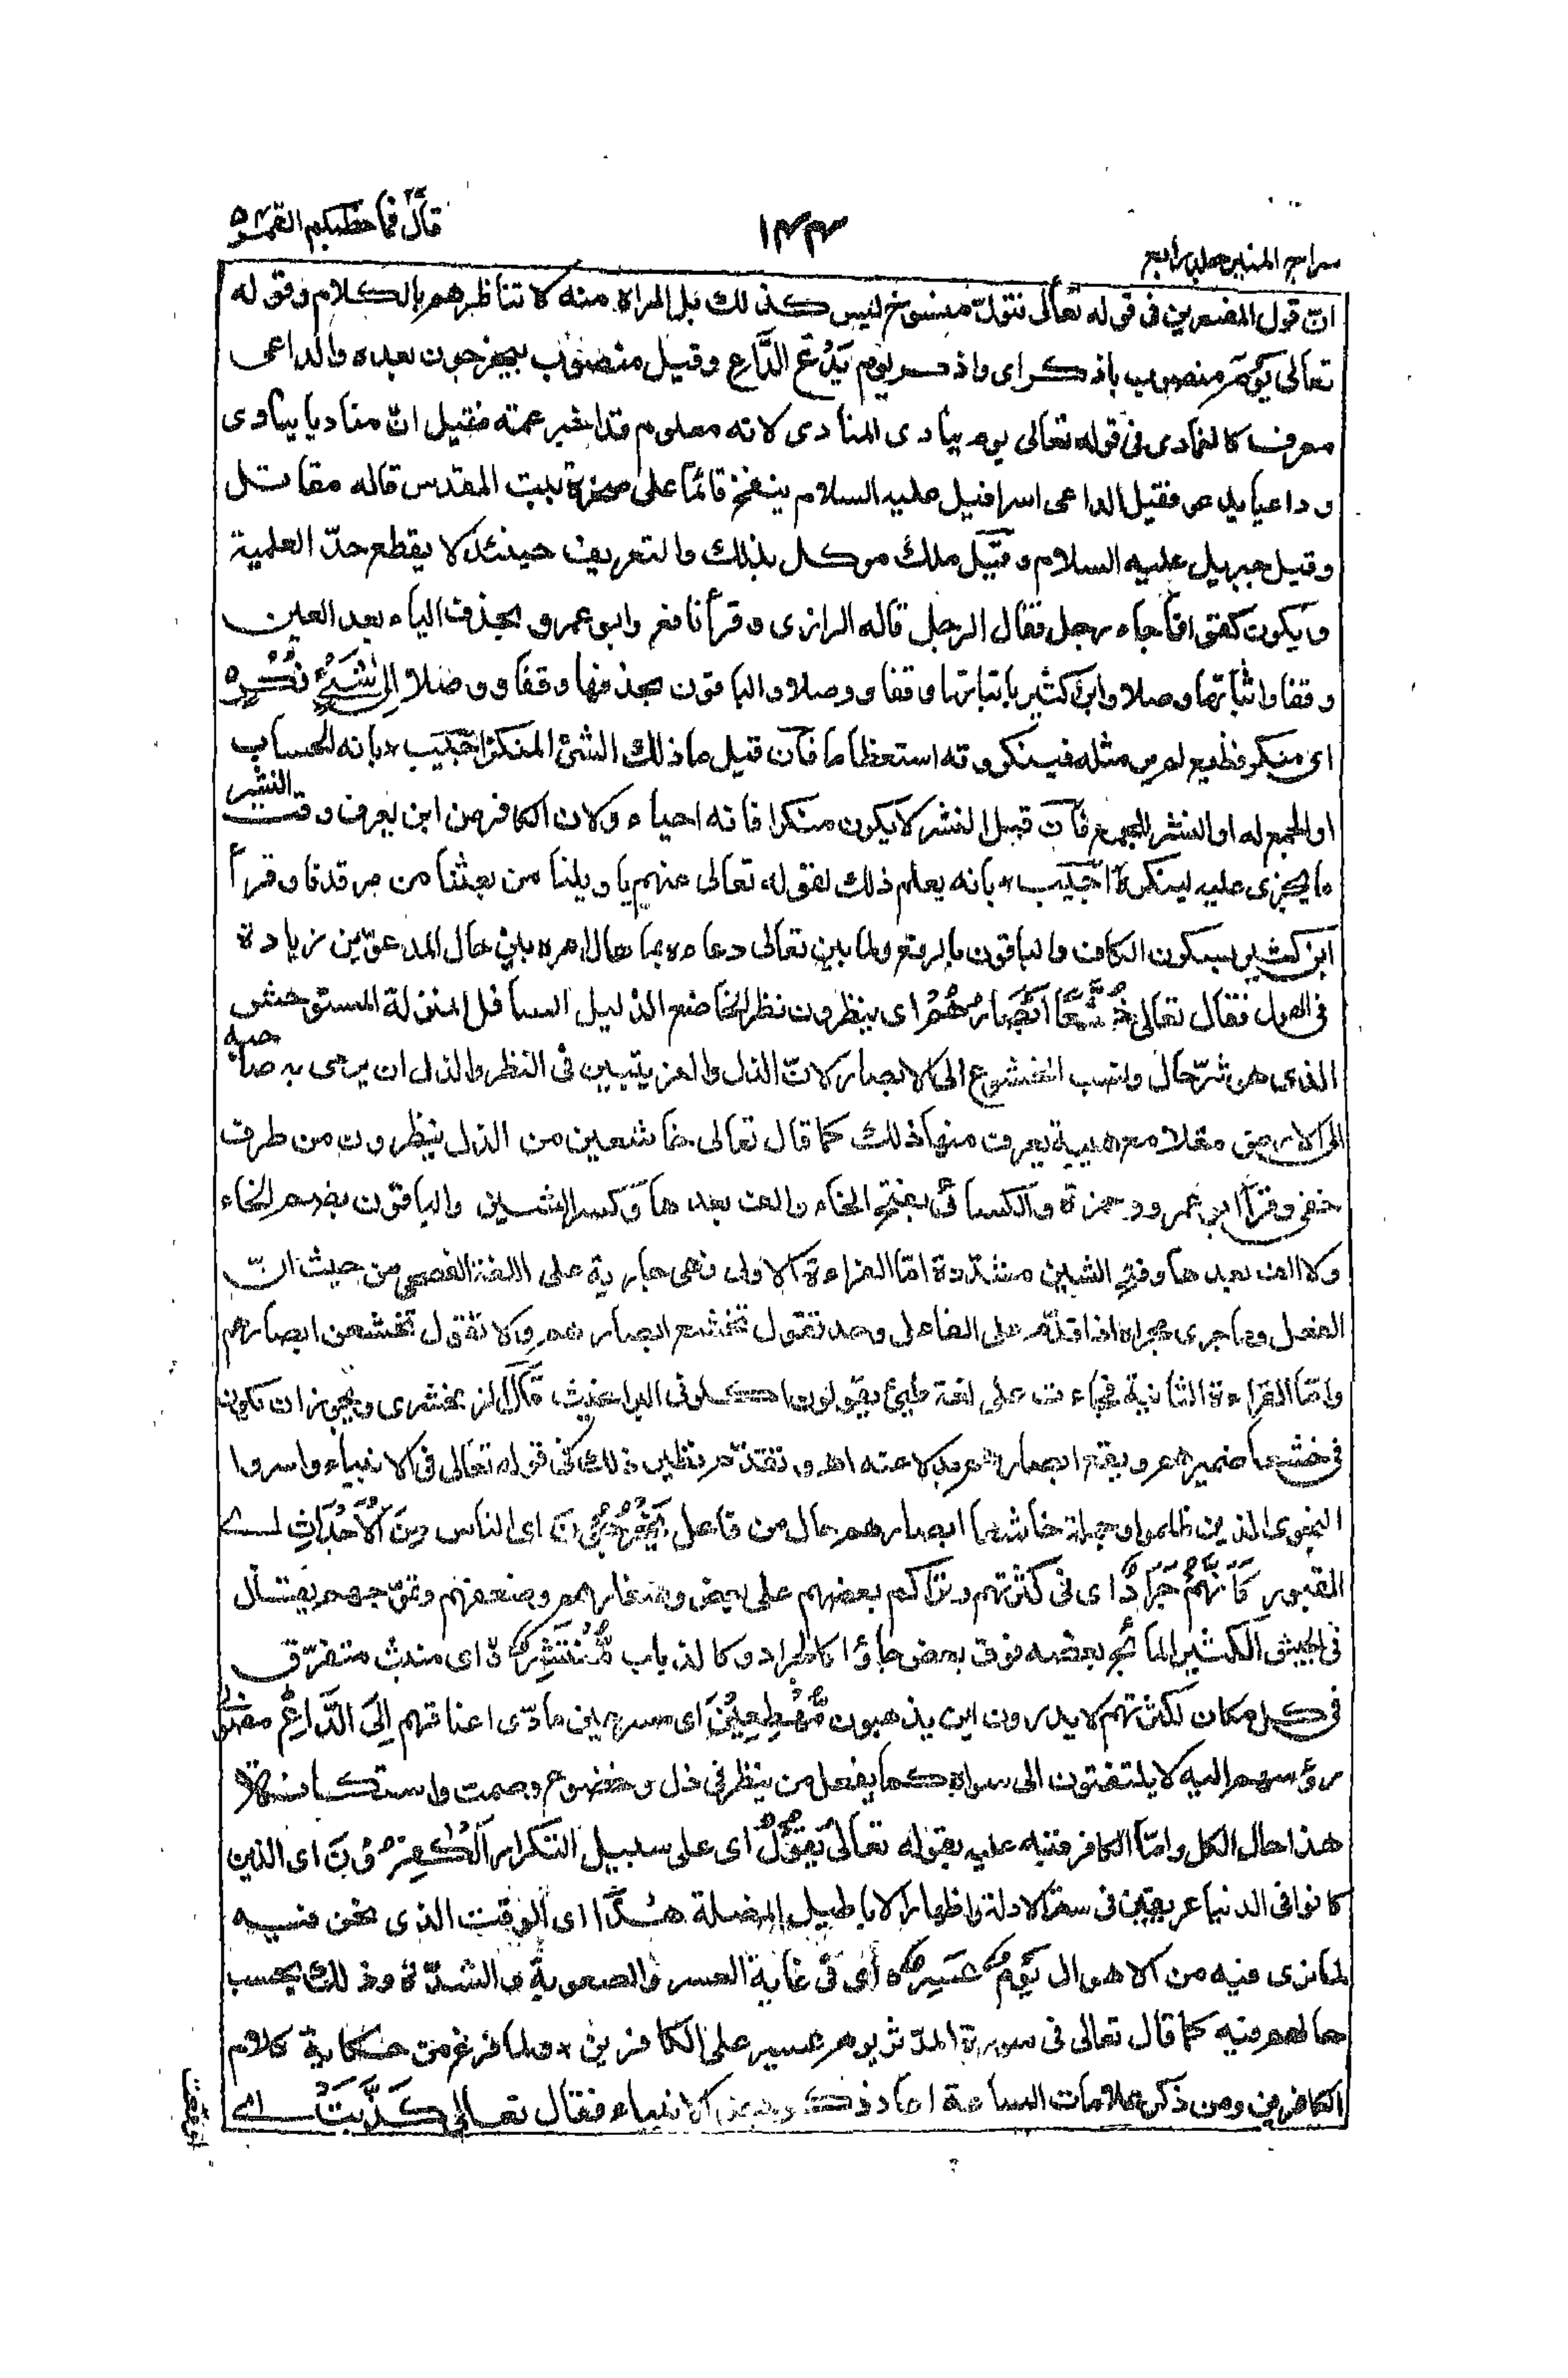 سراج المنير جلد رابع
١٤٣
قال فما خطبكم القمر ٥٤
انّ قول المفسرين فى قوله تعالى فتولّ منسوخ ليس كذلك بل المراد منه لا تناظرهم بالكلام وقوله
تعالى يَوْمَ منصوب باذكر اى واذكر يوم يَدْعُ الدَّاعِ وقيل منصوب بيخرجون بعده والداعى
معرف كالمنادى فى قوله تعالى يوم ينادى المنادى لانه معلوم قد اخبر عنه فقيل انّ مناديا ينادى
وداعيا يدعو فقيل الداعى اسرافيل عليه السلام ينفخ قائما على صخرة بيت المقدس قاله مقاتل
وقيل جبريل عليه السلام وقيل ملك موكل بذلك والتعريف حينئذ لا يقطع حدّ العلمية
ويكون كقولنا جاء رجل فقال الرجل قاله الرازى وقرأ نافع وابو عمرو بحذف الياء بعد العين
وقفا واثباتها وصلا وابن كثير باثباتها وقفا ووصلا والباقون بحذفها وقفا ووصلا اِلٰى شَيْءٍ نُّكُرٍ ه
اى منكر فظيع لم ير مثله فينكرونه استعظاما فان قيل ما ذلك الشئ المنكر اجيب * بانه الحساب
او الجمع له او النشر للجمع فان قيل النشر لا يكون منكرا فانه احياء ولان الكافر من اين يعرف وقت النشر
ما يجزى عليه لينكره اجيب * بانه يعلم ذلك لقوله تعالى عنهم يا ويلنا من بعثنا من مرقدنا وقرأ
ابن كثير بسكون الكاف والباقون بالرفع ولما بين تعالى دعاءه بما هال امره بين حال المدعوّين زيادة
فى الهول فقال تعالى خُشَّعًا اَبْصَارُهُمْ اى ينظرون نظر الخاضع الذليل السافل المنزلة المستوحش
الذى هو شرّ حال ونسب الخشوع الى الابصار لانّ الذل والعز يتبين فى النظر والذل ان يرمى به صاحبه
الى الارض مثلا مع هيبة يعرف منها ذلك كما قال تعالى خاشعين من الذل ينظرون من طرف
خفى وقرأ ابو عمرو وحمزة والكسائى بفتح الخاء والف بعدها وكسر الشين والباقون بضم الخاء
ولا الف بعدها وفتح الشين مشدّدة امّا القراءة الاولى فهى جارية على اللغة الفصحى من حيث انّ
الفعل وما جرى مجراه اذا قدّم على الفاعل وحد تقول تخشع ابصارهم ولا تقول تخشعن ابصارهم
وامّا القراءة الثانية فجاءت على لغة طيئ يقولون اكلونى البراغيث قال الزمخشرى ويجوز ان يكون
فى خشعا ضميرهم ويقع ابصارهم بدلا عنه اه وتقدّم نظير ذلك فى قوله تعالى فى الانبياء واسروا
النجوى الذين ظلموا وجملة خاشعا ابصارهم حال من فاعل يَخْرُجُوْنَ اى الناس مِنَ الْاَجْدَاثِ اى
القبور كَاَنَّهُمْ جَرَادٌ اى فى كثرتهم وتراكم بعضهم على بعض وصغارهم وضعفهم وتموّجهم يقال
فى الجيش الكثير المائج بعضه فوق بعض جاؤا كالجراد وكالذباب مُّنْتَشِرٌ ه اى منبث متفرّق
فى كل مكان لكثرتهم لا يدرون اين يذهبون مُّهْطِعِيْنَ اى مسرعين مادّى اعناقهم اِلَى الدَّاعِ
رؤسهم اليه لا يلتفتون الى سواه كما يفعل من ينظر فى ذل وخضوع وصمت واستكانة
هذا حال الكل وامّا الكافر فنبه عليه بقوله تعالى يَقُوْلُ اى على سبيل التكرار الْكٰفِرُوْنَ اى الذين
كانوا فى الدنيا عريقين فى ستر الادلة واظهار الاباطيل المضلة هٰذَا اى الوقت الذى نحن فيه
لما نرى فيه من الاهوال يَوْمٌ عَسِرٌ ه اى فى غاية العسر والصعوبة والشدّة وذلك بحسب
حالهم فيه كما قال تعالى فى سورة المدّثر يوم عسير على الكافرين * ولما فرغ من حكاية كلام
الكافرين ومن ذكر علامات الساعة اعاد ذكر بعض الانبياء فقال تعالى كَذَّبَتْ اى